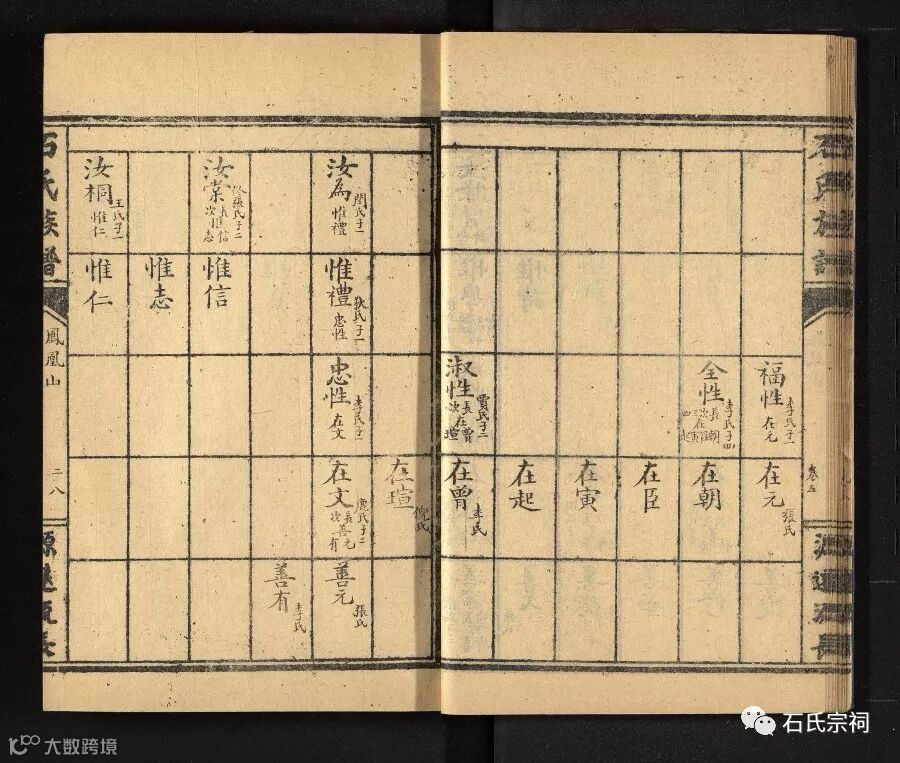 石氏族譜
卷五
源遠流長
福性
李氏子一
在元
在元
張氏
全性
李氏子四
在朝
在臣
在寅
在起
淑性
賈氏子二
長在曾
次在瑄
在曾
李氏
在瑄
倪氏
汝為
閆氏子一
惟禮
惟禮
狄氏子一
忠性
忠性
李氏子一
在文
在文
龐氏子二
長善元
次善有
善元
張氏
善有
李氏
汝棠
張氏子二
長惟信
次惟志
惟信
惟志
汝桐
王氏子一
惟仁
惟仁
石氏族譜
鳳凰山
二八
源遠流長
石氏宗祠
大数跨境